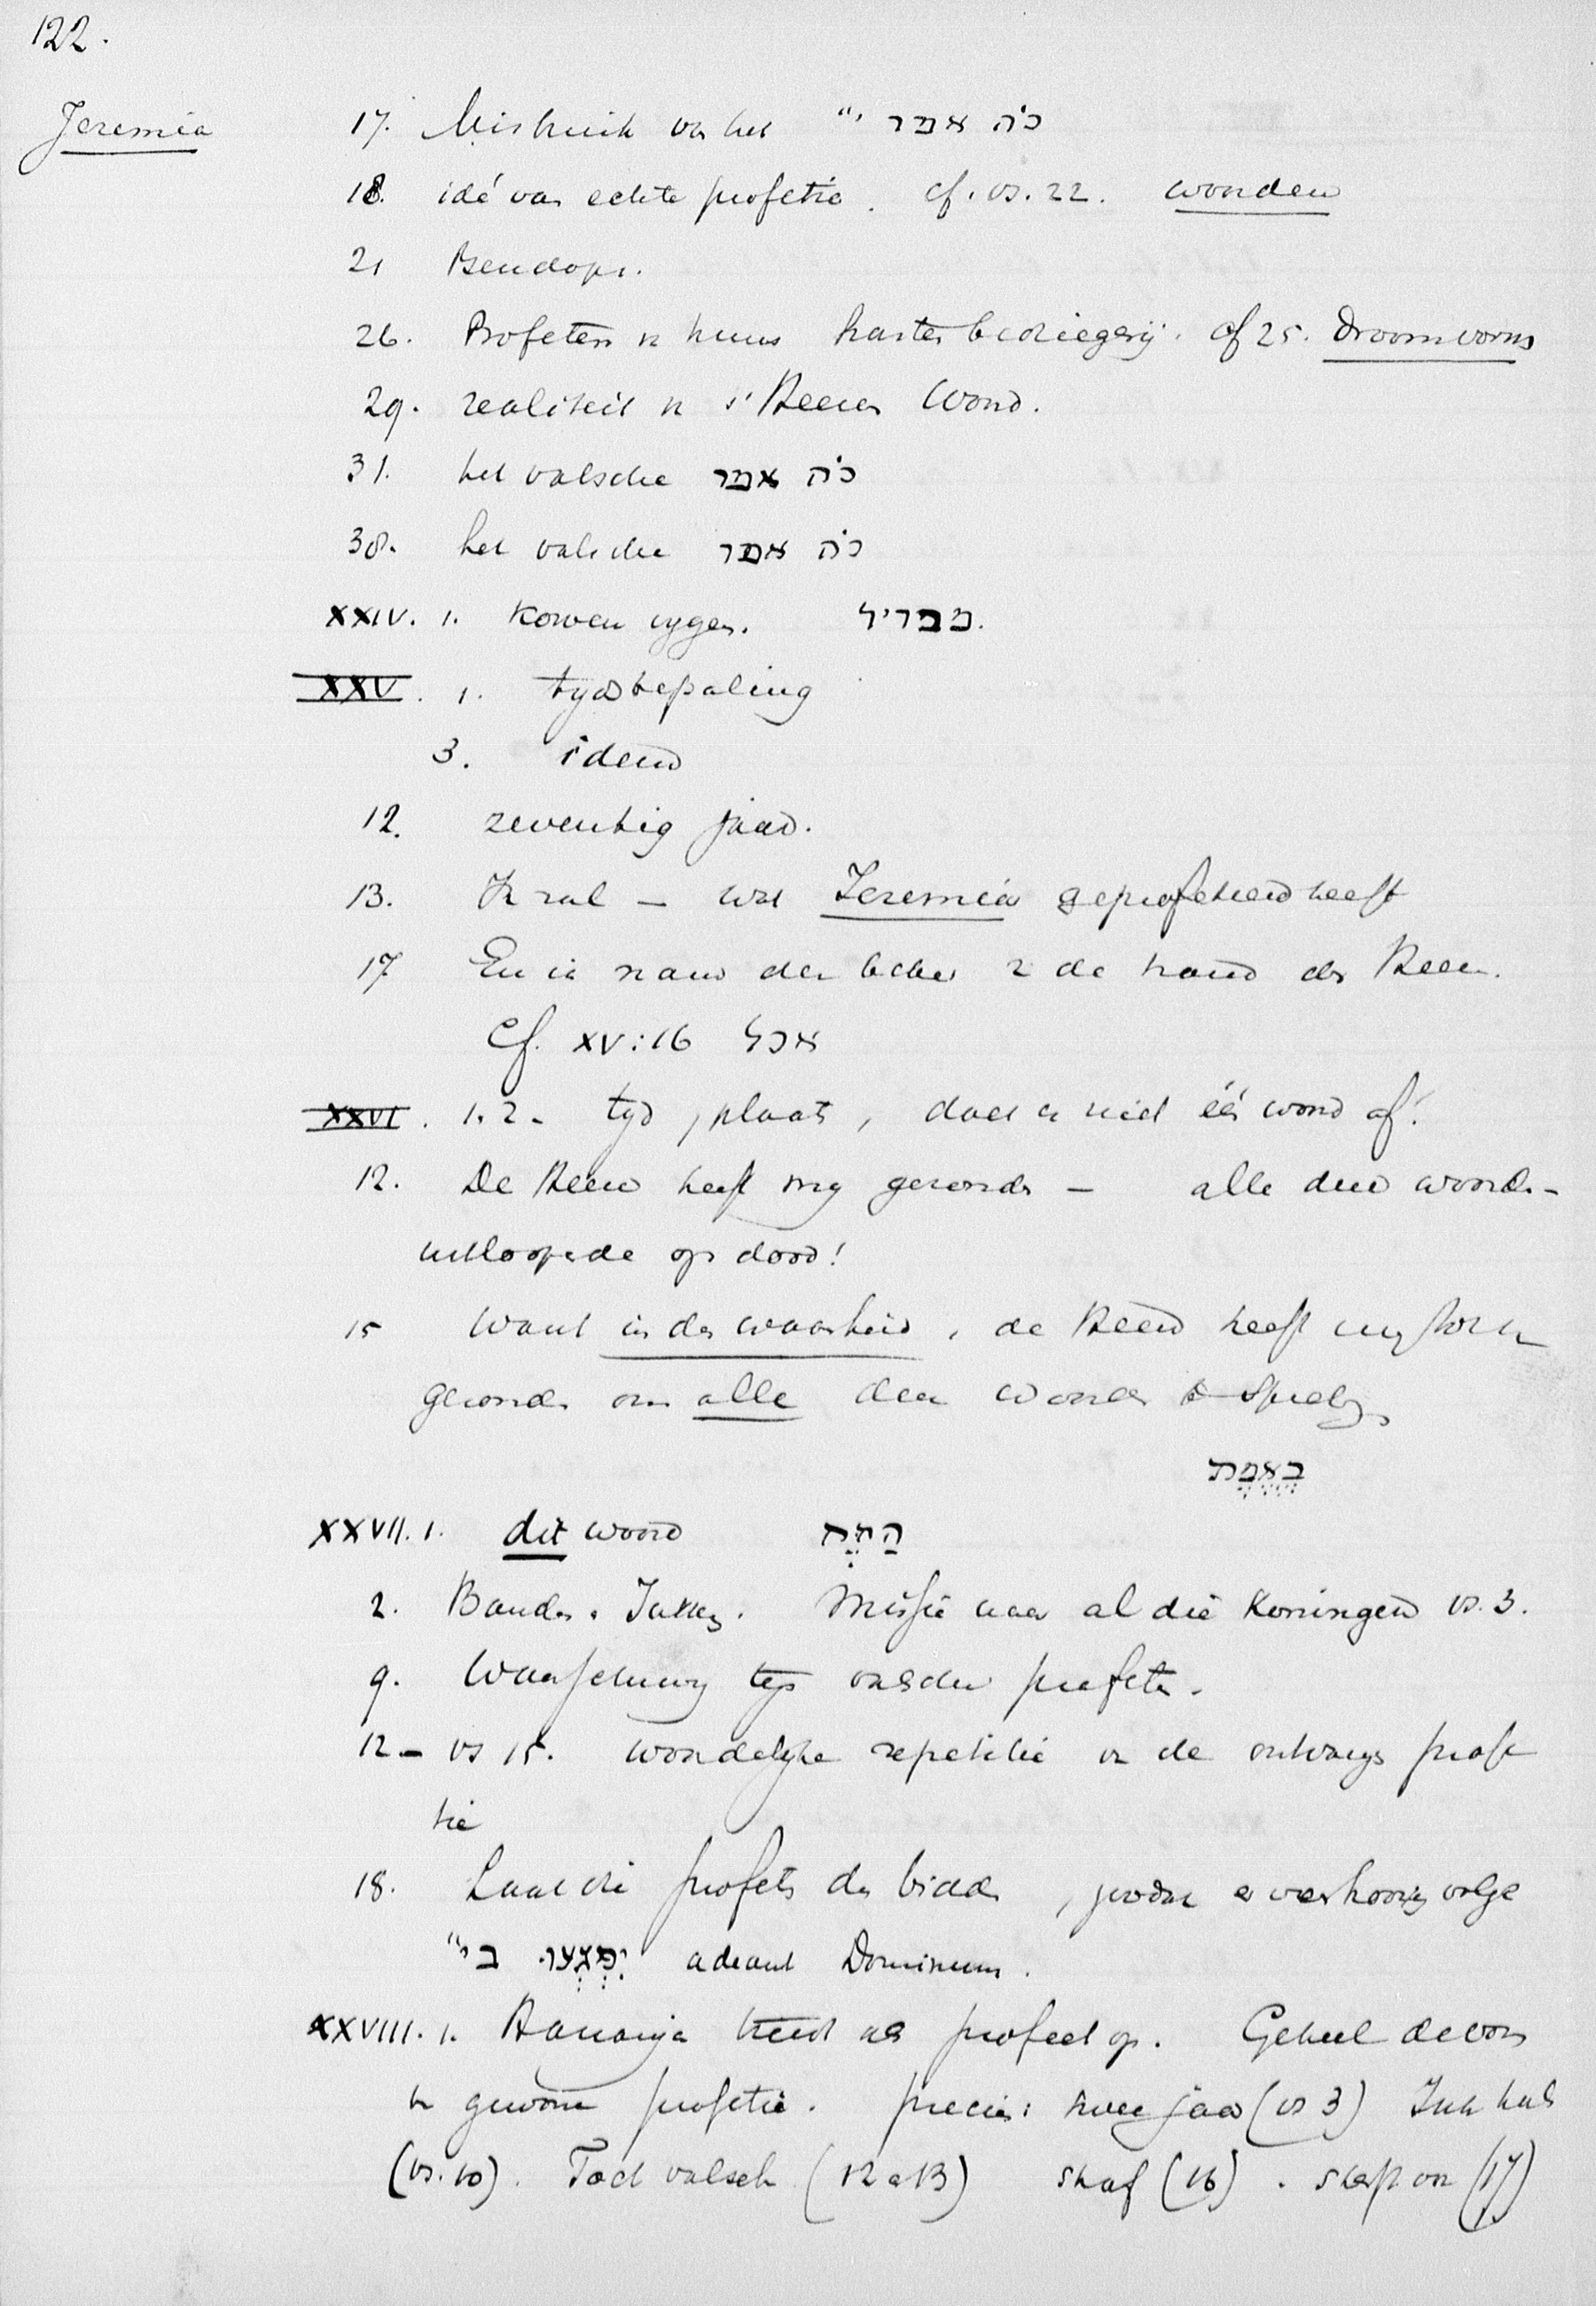 122.
Jeremia 17. Misbruik van het כֹּה אמר י״
18. idé van echte profetie. cf. vs. 22. woorden
21 Pseudopr.
26. Profeten van huns harten bedriegerij. cf 25. Droomvorm
29. realiteit van 's Heeren Woord.
31. het valsche כֹּה אמר
30. het valsche כֹּה אמר
XXIV. 1. Korven vygen.
XXV. 1. tydsbepaling
3. idem
12. zeventig jaar.
13. Ik zal — wat Jeremia geprofeteerd heeft
17 En ik nam den beker van de hand des Heeren.
Cf. XV:16 אכל
XXVI. 1.2. tyd, plaats, doet er niet één woord af!
12. De Heere heeft my gezonden — alle deze woorden —
uitloopende op dood!
15 Want in der waarheid, de Heere heeft my tot u
gezonden om alle deze woorden te spreken
בֶאֱמֶת
XXVII. 1. dit woord הַזֶּה
2. Banden. Jukken. Missie naar al die Koningen vs. 3.
9. Waarschuwing tegen valsche profeten.
12 — vs 15. woordelyke repetitie van de ontvangen profe
tie
18. Laat die profeten den bidden, zoodat er verhooring volge
יִפְגְּעוּ בי״ adeant Dominum.
XXVIII. 1. Hananja treedt als profeet op. Geheel de vorm
van gewone profetie. precies: twee jaar (vs 3) Juk
(vs. 10). Toch valsch (12 en 13) straf (16). sterft (17)